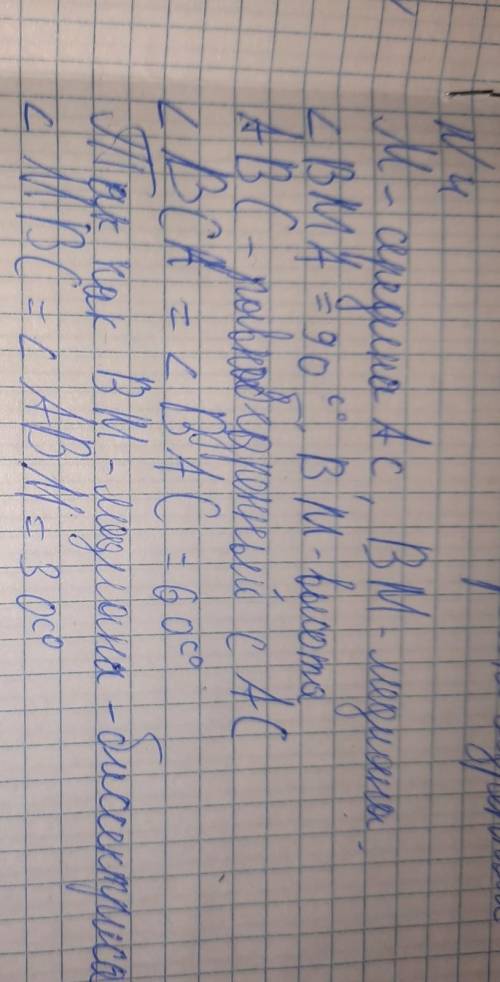 N 4
M - середина AC, BM - медиана.
∠ BMA = 90°. BM - высота
ABC - равнобедренный с AC
∠ BCA = ∠ BAC = 60°
Так как BM - медиана - биссектриса
∠ MBC = ∠ ABM = 30°